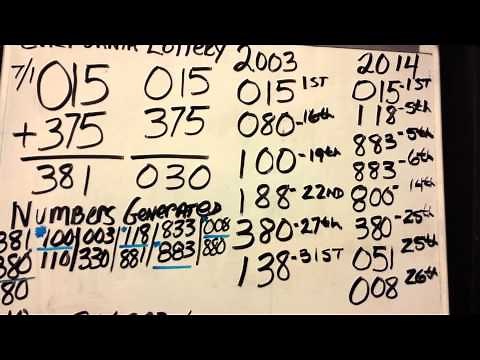 CALIFORNIA LOTTERY
7/1 015 015
+375 375
381 030
NUMBERS GENERATED
381 100/003/118/833/008
380 110/330/881/883/880
80
2003
015-1ST
080-16th
100-19th
188-22ND
380-27th
138-31ST
2014
015-1ST
118-5th
883-5th
883-6th
800-14th
380-25th
051 25th
008 26th